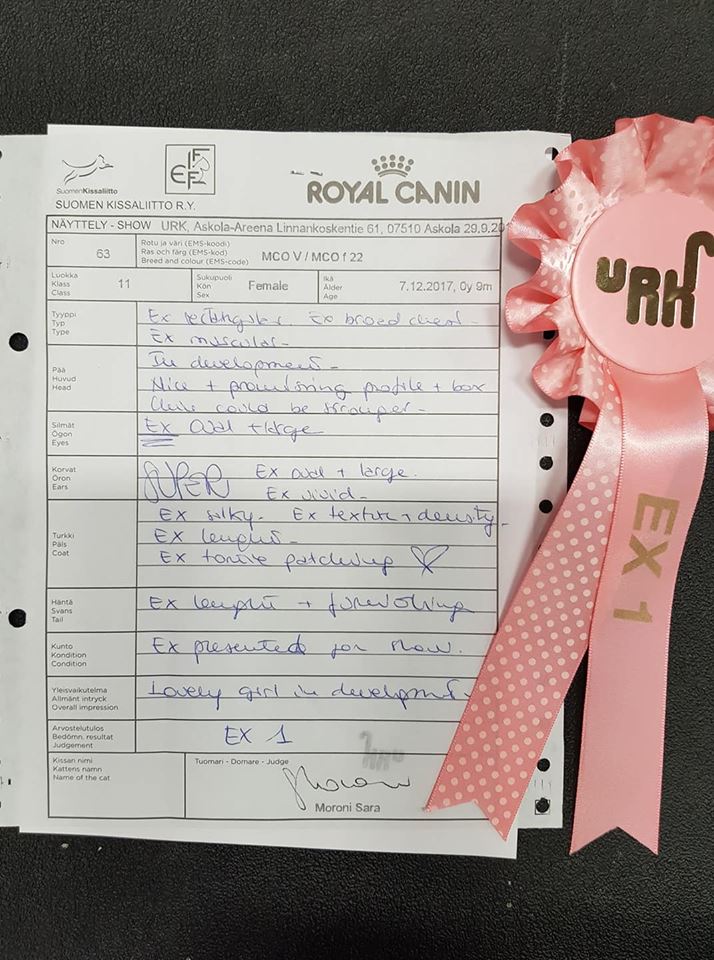 SuomenKissaliitto
FIFe
ROYAL CANIN
SUOMEN KISSALIITTO R.Y.
NÄYTTELY - SHOW URK, Askola-Areena Linnankoskentie 61, 07510 Askola 29.9.20
Nro
63
Rotu ja väri (EMS-koodi)
Ras och färg (EMS-kod)
Breed and colour (EMS-code)
MCO V / MCO f 22
Luokka
Klass
Class
11
Sukupuoli
Kön
Sex
Female
Ikä
Ålder
Age
7.12.2017, 0y 9m
Tyyppi
Typ
Type
Ex rectangular. Ex broad chest -
Ex muscular -
Pää
Huvud
Head
In development -
Nice + promising profile + box
Chin could be stronger -
Silmät
Ögon
Eyes
Ex oval + large
Korvat
Öron
Ears
SUPER Ex oval + large.
Ex vivid -
Turkki
Päls
Coat
Ex silky. Ex texture + density -
Ex lenght -
Ex tortie patching
Häntä
Svans
Tail
Ex lenght + furnishing
Kunto
Kondition
Condition
Ex presented for show.
Yleisvaikutelma
Allmänt intryck
Overall impression
Lovely girl in development
Arvostelutulos
Bedömn. resultat
Judgement
EX 1
Kissan nimi
Kattens namn
Name of the cat
Tuomari - Domare - Judge
Moroni Sara
URK
URK
EX 1